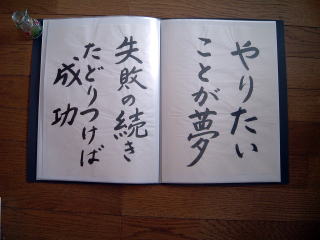 やりたい
ことが夢
失敗の続き
たどりつけば
成功